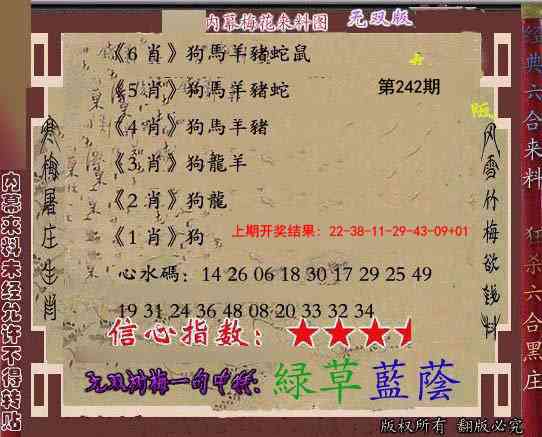 内幕梅花来料图 无双版
《6 肖》狗馬羊豬蛇鼠
《5 肖》狗馬羊豬蛇
第242期
《4 肖》狗馬羊豬
《3 肖》狗龍羊
《2 肖》狗龍
《1 肖》狗
上期开奖结果：22-38-11-29-43-09+01
心水碼：14 26 06 18 30 17 29 25 49
19 31 24 36 48 08 20 33 32 34
信心指数：
无双剑梅一句中特：綠草藍蔭
版权所有 翻版必究
寒梅屠庄生肖
风雪竹梅欲钱料
内幕来料未经允许不得转贴
经典六合来料
狂杀六合黑庄